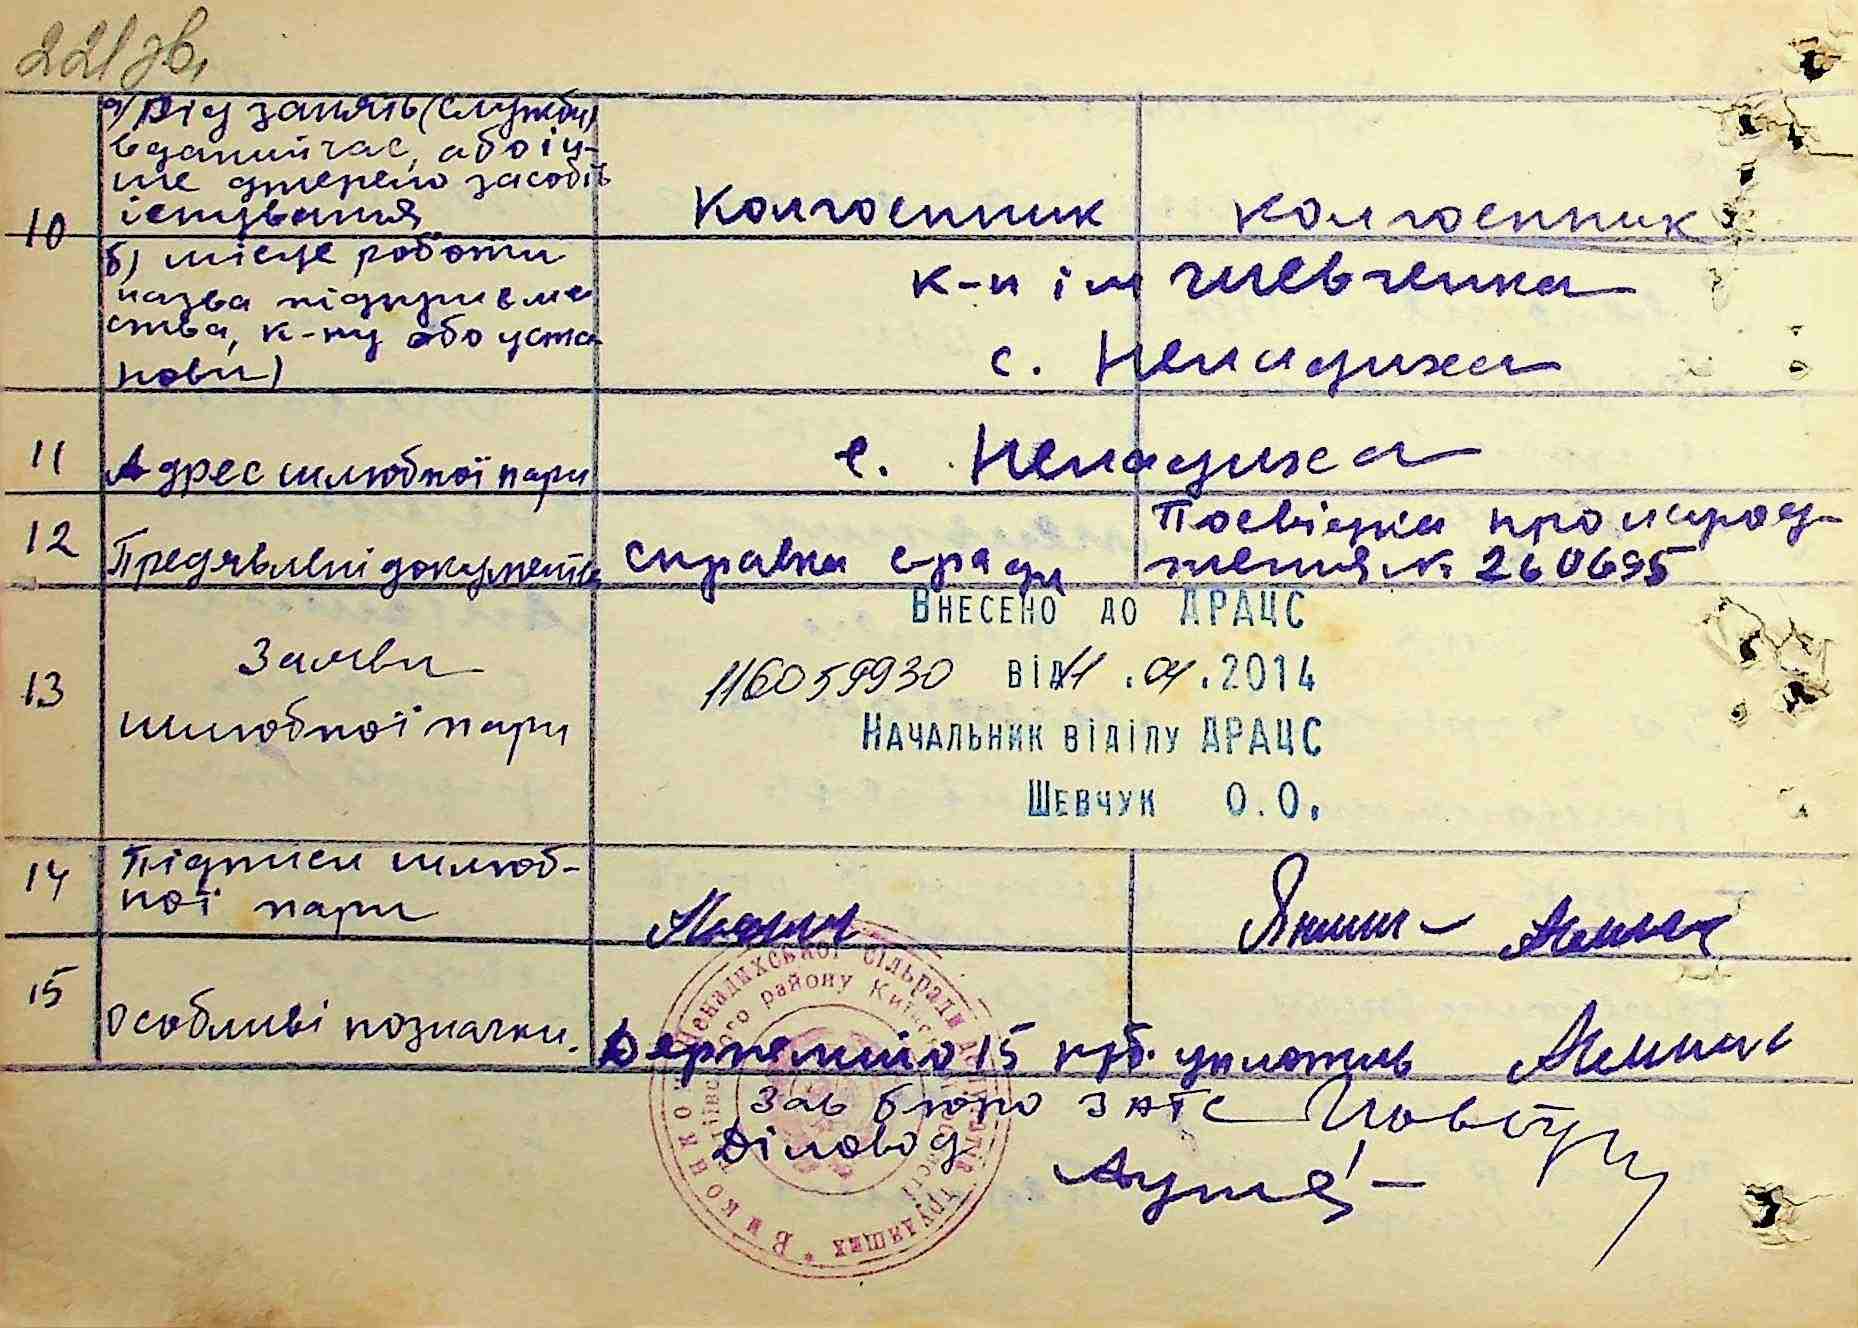 221 зв.
10
а) Рід занять (служби)
в даний час, або ін-
ше джерело засобів
існування
Колгоспник
колгоспник
б) місце роботи
назва підприєм-
ства, к-пу або уста-
нови)
к-п ім Шевченка
с. Ненадиха
11
Адрес шлюбної пари
с. Ненадиха
12
Предявлені документи
справка с-ради
Посвідка про народ-
ження № 260695
13
Заяви
шлюбної пари
Внесено до ДРАЦС
116059930 від 11.04.2014
Начальник відділу ДРАЦС
Шевчук О.О.
14
Підписи шлюб-
ної пари
15
Особливі позначки.
Держмито 15 крб. уплотив
Зав бюро ЗАГС
Діловод
Виконком Ненадихської сільради депутатів трудящих
району Київської області